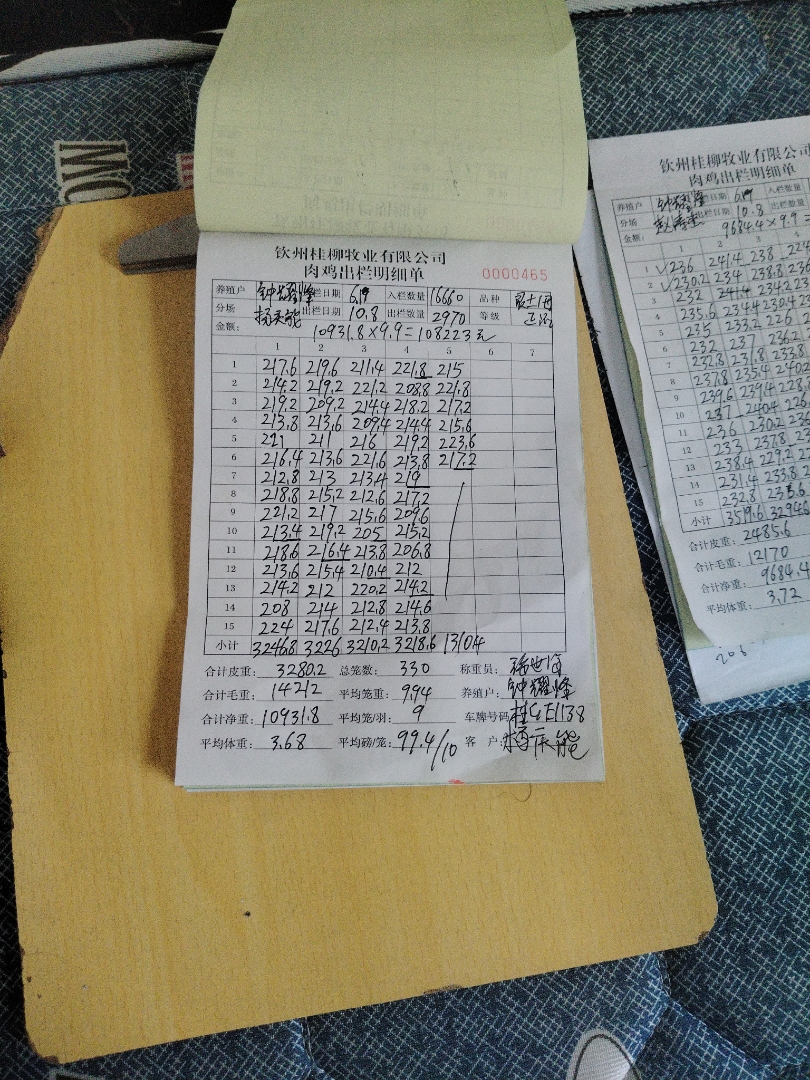 MC
钦州桂柳牧业有限公司
肉鸡出栏明细单 0000465
养殖户 钟耀峰 栏日期 6.19 入栏数量 16660 品种
分场 出栏日期 10.8 出栏数量 2970 等级
金额: 10931.8×9.9=108223元
1 2 3 4 5 6 7
1 217.6 219.6 211.4 221.8 215
2 214.2 219.2 221.2 208.8 221.8
3 219.2 209.2 214.4 218.2 217.2
4 213.8 213.6 209.4 214.4 215.6
5 221 211 216 219.2 223.6
6 216.4 213.6 221.6 213.8 217.2
7 212.8 213 213.4 219
8 218.8 215.2 212.6 217.2
9 221.2 217 215.6 209.6
10 213.4 219.2 205 215.2
11 218.6 216.4 213.8 206.8
12 213.6 215.4 210.4 212
13 214.2 212 220.2 214.2
14 208 214 212.8 214.6
15 224 217.6 212.4 213.8
小计 3246.8 3226 3210.2 3218.6 1310.4
合计皮重: 3280.2 总笼数: 330 称重员:
合计毛重: 14212 平均笼重: 9.94 养殖户: 钟耀峰
合计净重: 10931.8 平均笼/羽: 9 车牌号码
平均体重: 3.68 平均磅/笼: 99.4/10 客 户:
钦州桂柳牧业有限公司
肉鸡出栏明细单
养殖户 钟耀峰 栏日期 6.19 入栏数量
分场 出栏日期 10.8 出栏数量
金额: 9684.4×9.9
1 2 3 4
1 236 241.4 238
2 230.2 234 238.8
3 232 241.4 234.2
4 235.6 234.4 230.4
5 235 233.2 226
6 232 237 236.2
7 232.8 231.8 233.8
8 237.8 235.4 240.2
9 239.6 239.4 228
10 237 240.4 226
11 236 230.2
12 233 237.8
13 238.4 229.2
14 231.4 233.8
15 232.8 235.6
小计 3519.6 3294.6
合计皮重: 2485.6
合计毛重: 12170
合计净重: 9684.4
平均体重: 3.72